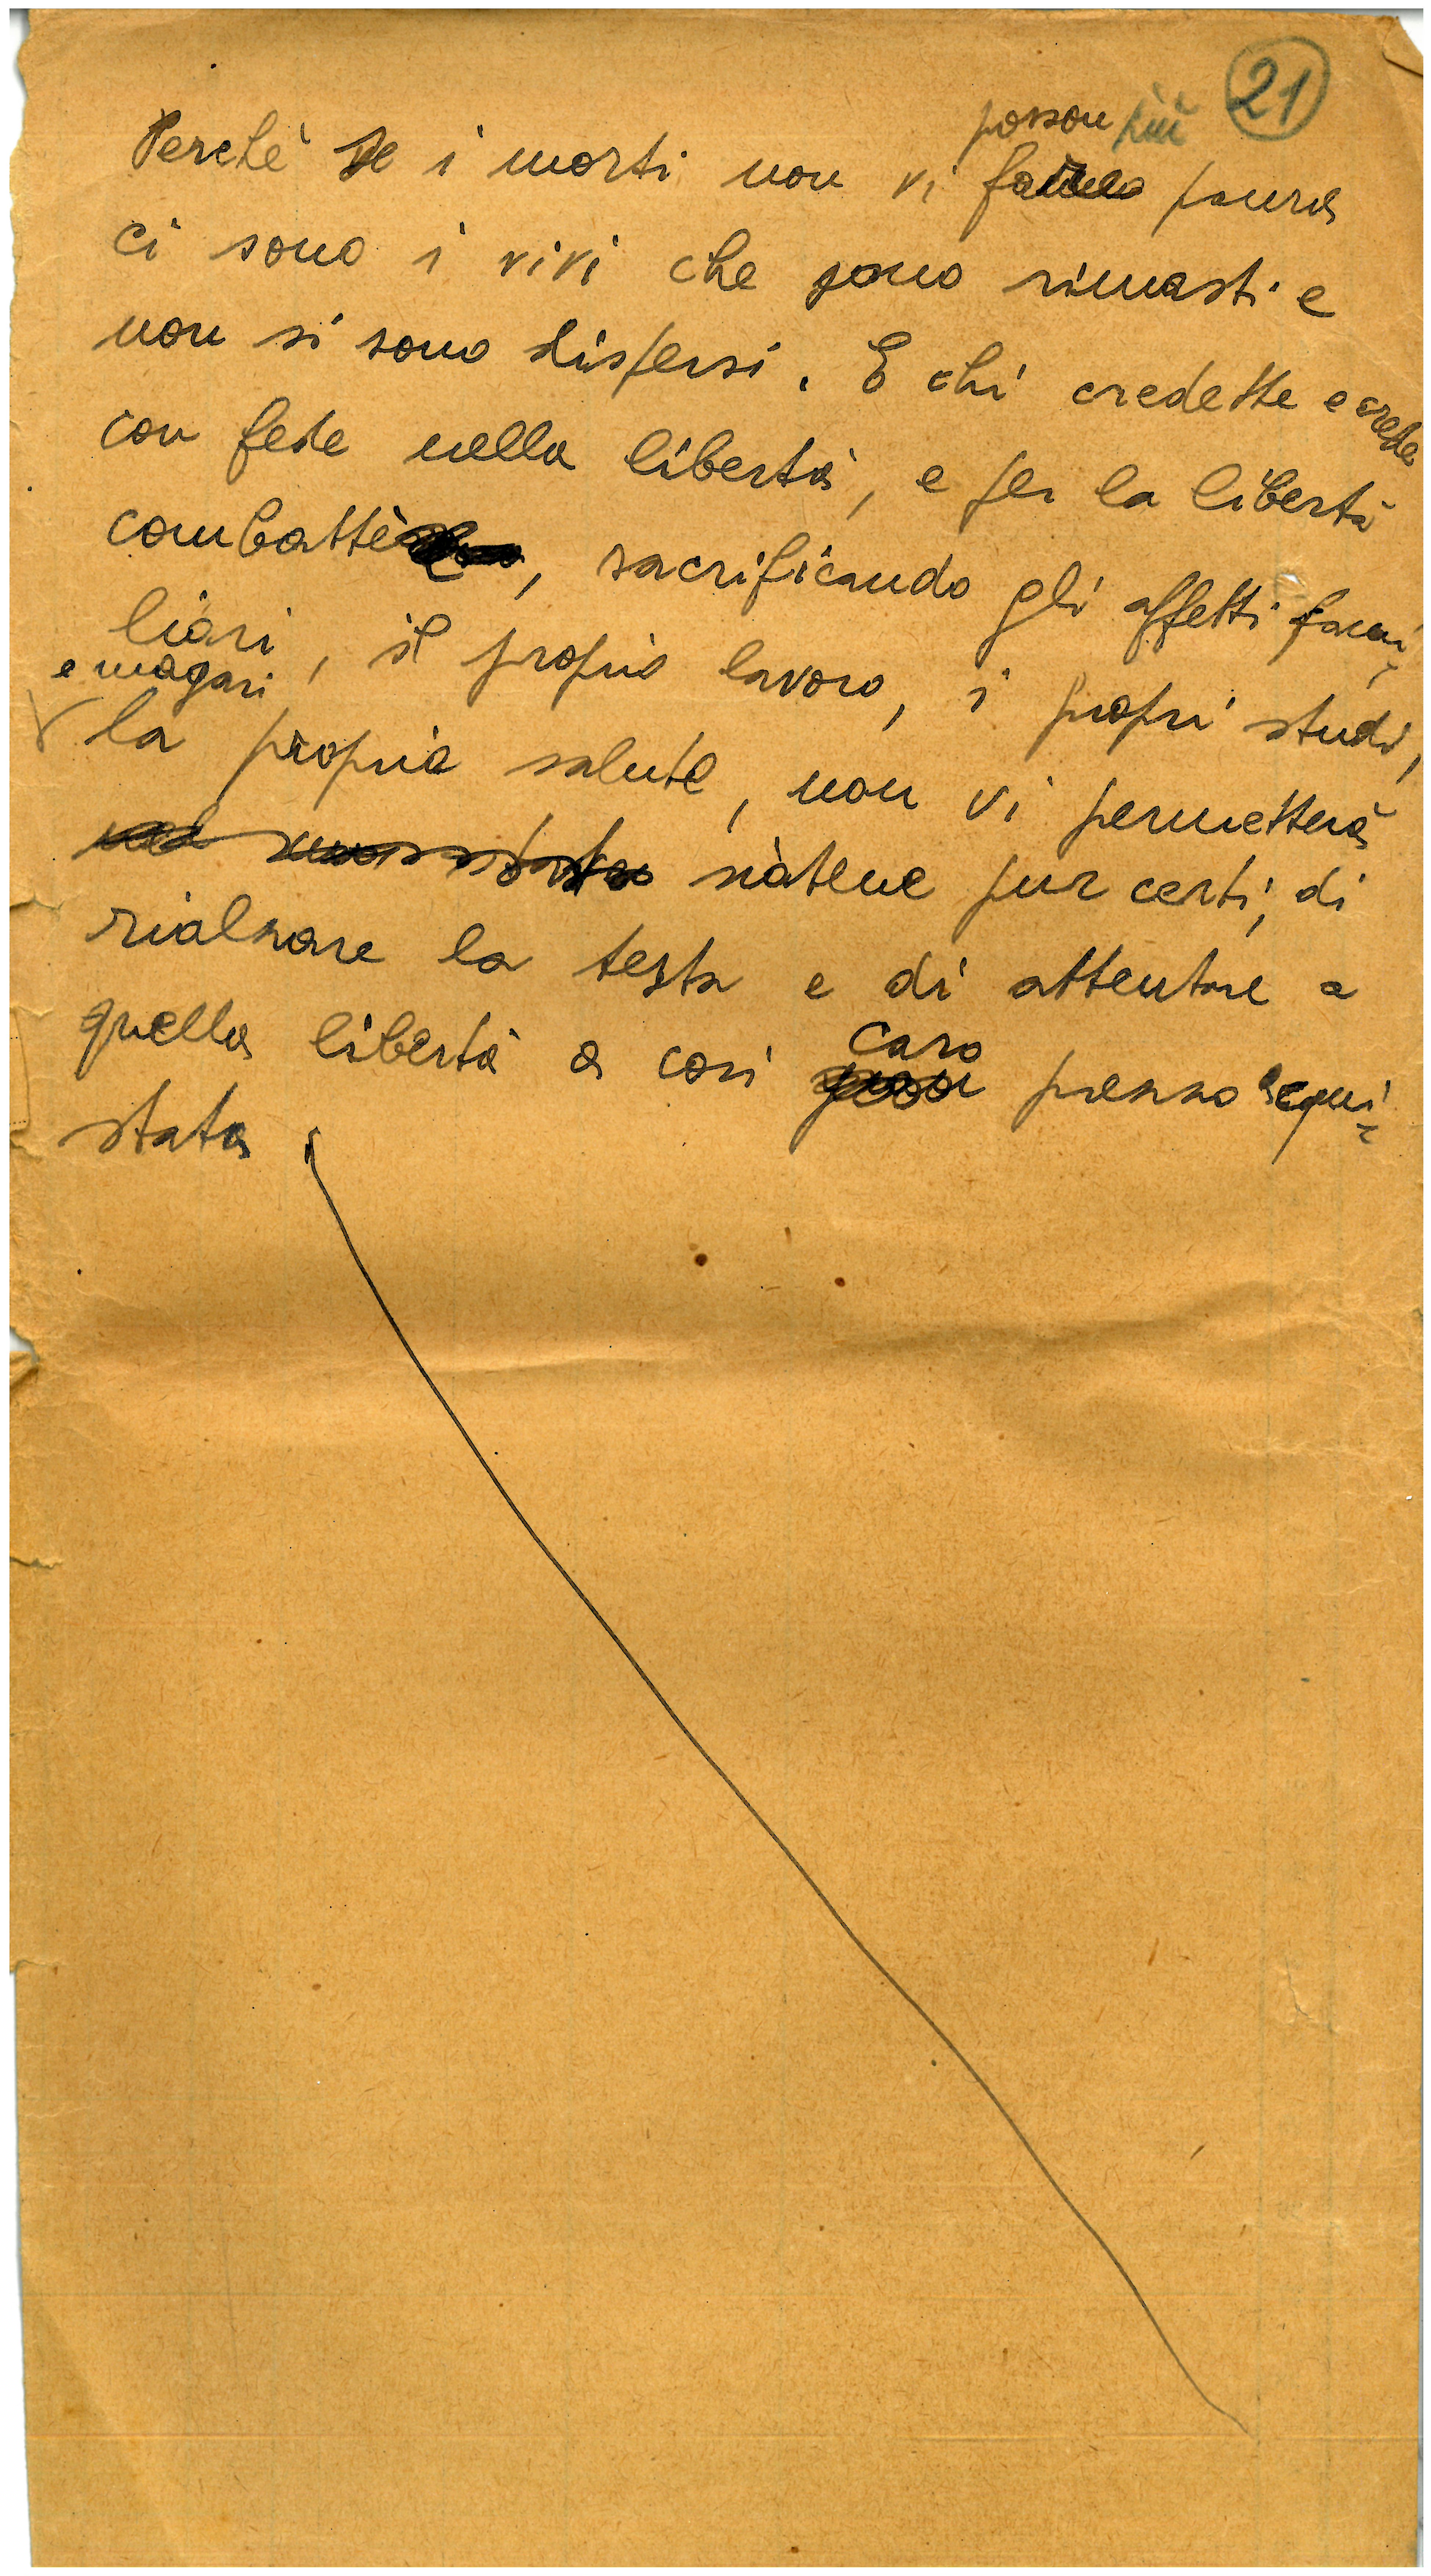 21
posson più
Perchè se i morti non vi fare paura
ci sono i vivi che sono rimasti e
non si sono dispersi. E chi credette e crede
con fede nella libertà, e per la libertà
combattè, sacrificando gli affetti fami=
liari, il proprio lavoro, i propri studi,
e magari
la propria salute, non vi permetterà
siatene pur certi, di
rialzare la testa e di attentare a
quella libertà a così caro prezzo acqui=
stata.